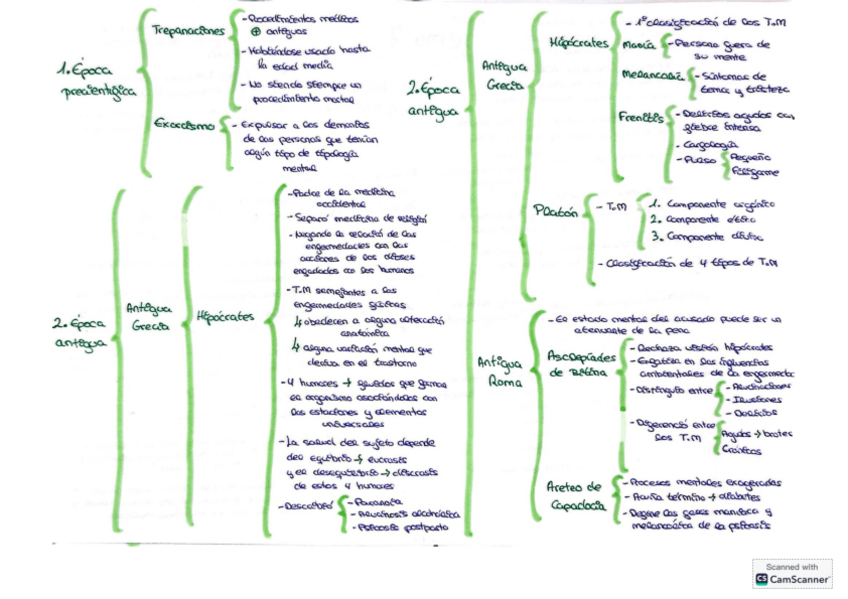 1. Época
precientífica
Trepanaciones
- Procedimientos médicos
⊕ antiguos
- Habiéndose usado hasta
la edad media
- No siendo siempre un
procedimiento mortal
Exorcismo
- Expulsar a los demonios
de las personas que tenían
algún tipo de tipología
mental
2. Época
antigua
Antigua
Grecia
Hipócrates
- Padre de la medicina
occidental
- Separó medicina de religión
- Negando la relación de las
enfermedades con las
acciones de los dioses
enfadados con los humanos
- T.M semejantes a las
enfermedades físicas
↳ obedecen a alguna alteración
anatómica
↳ alguna variación mental que
deriva en el trastorno
- 4 humores → fluidos que forman
el organismo asociándolos con
las estaciones y elementos
universales
- La salud del sujeto depende
del equilibrio → eucrasis
y el desequilibrio → discrasis
de estos 4 humores
- Describió
- Paranoia
- Alucinosis alcohólica
- Psicosis postparto
2. Época
antigua
Antigua
Grecia
Hipócrates
- 1ª clasificación de los T.M
Manía
- Persona fuera de
su mente
Melancolía
- Síntomas de
temor y tristeza
Frenitis
- Delirios agudos con
fiebre intensa
- Pulso
Pequeño
Filiforme
Platón
- T.M
1. Componente orgánico
2. Componente ético
3. Componente divino
- Clasificación de 4 tipos de T.M
Antigua
Roma
- El estado mental del acusado puede ser un
atenuante de la pena
Asclepíades
de Bitinia
- Rechaza visión hipócrates
- Enfatiza en las influencias
ambientales de la enfermedad
- Distinguió entre
- Alucinaciones
- Ilusiones
- Delirios
- Diferenció entre
los T.M
Agudos → brotes
Crónicos
Areteo de
Capadocia
- Procesos mentales exagerados
- Acuña término → diabetes
- Define las fases maníaca y
melancólica de la psicosis
Scanned with
CS CamScanner